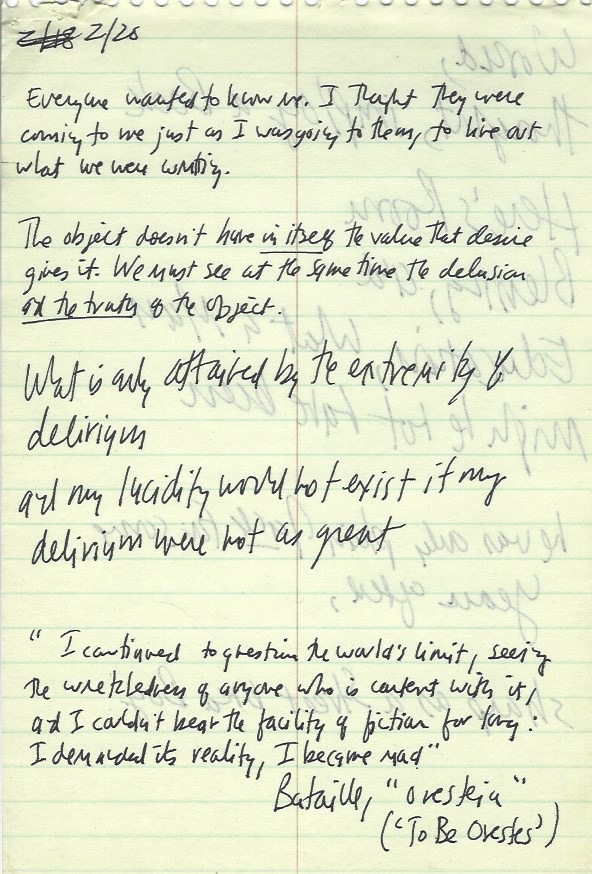 2/18 2/20
Everyone wanted to know me. I thought they were
coming to me just as I was going to them, to live out
what we were writing.
The object doesn't have in itself the value that desire
gives it. We must see at the same time the delusion
and the truth of the object.
What is only attained by the extremity of
delirium
and my lucidity would not exist if my
delirium were not as great
" I continued to question the world's limit, seeing
the wretchedness of anyone who is content with it,
and I couldn't bear the facility of fiction for long:
I demanded its reality, I became mad"
Bataille, "Oresteia"
('To Be Orestes')